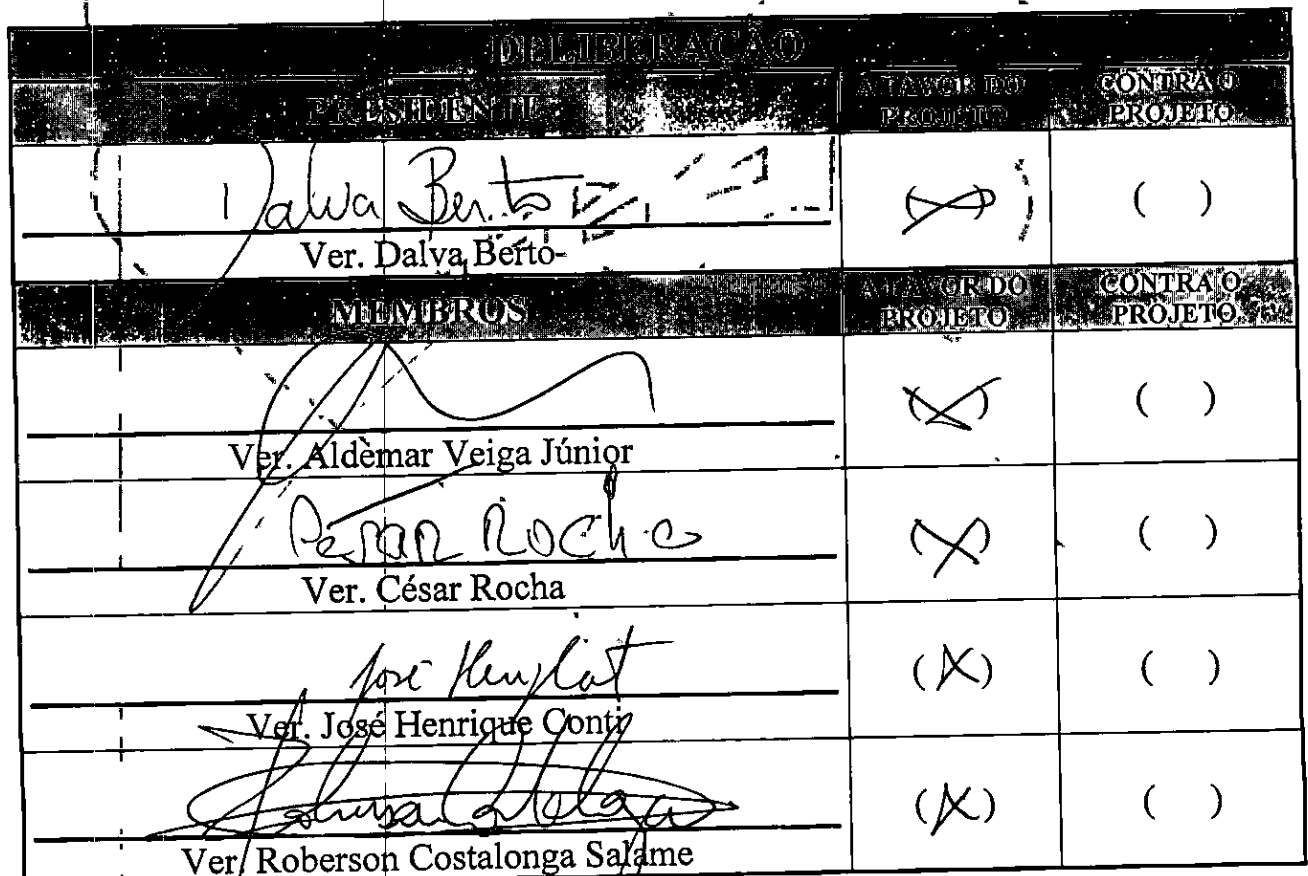 DELIBERAÇÃO
PRESIDENTE A FAVOR DO PROJETO CONTRA O PROJETO
Dalva Berto ( X ) ( )
Ver. Dalva Berto
MEMBROS A FAVOR DO PROJETO CONTRA O PROJETO
(X) ( )
Ver. Aldemar Veiga Júnior
César Rocha (X) ( )
Ver. César Rocha
José (X) ( )
Ver. José Henrique Conti
(X) ( )
Ver. Roberson Costalonga Salame